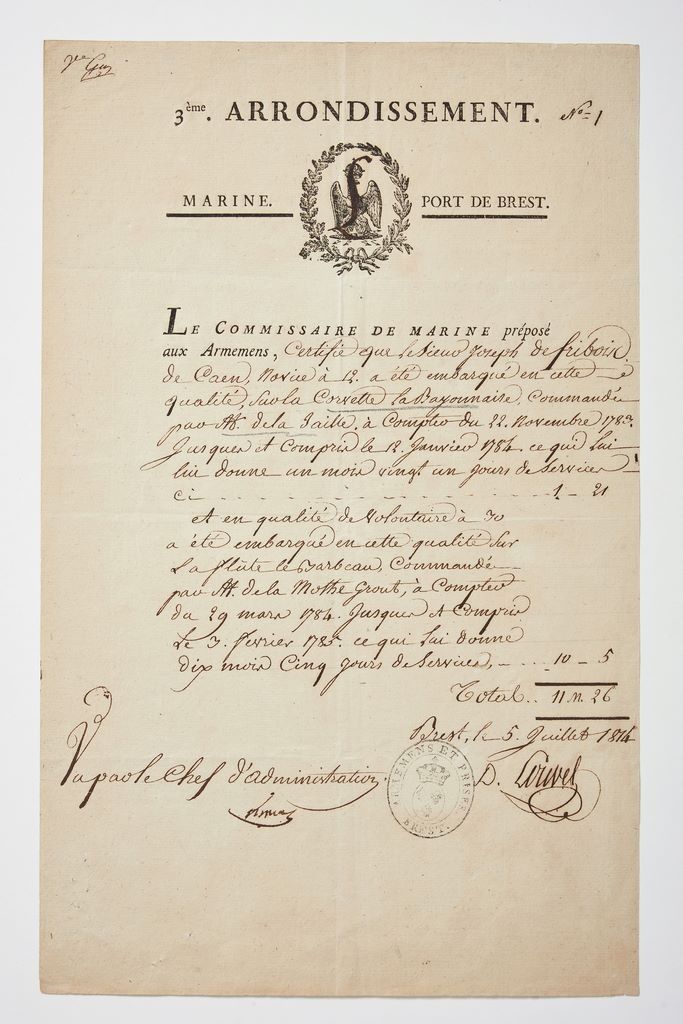 3ème. ARRONDISSEMENT. No= 1
MARINE. PORT DE BREST.
LE COMMISSAIRE DE MARINE préposé
aux Armemens, Certifie que le Sieur Joseph de friboix
de Caen, Novice à 12. a été embarqué en cette
qualité, Sur la Corvette la Bayonnaise, Commandée
par M. de la Taille, à Compter du 22. Novembre 1783.
Jusques et Compris le 12. Janvier 1784. ce qui lui
lui donne un mois vingt un jours de Services
Ci 1 - 21
et en qualité de Volontaire à 30
a été embarqué en cette qualité Sur
La flûte le Barbeau, Commandée
par M. de la Mothe Grout, à Compter
du 29 mars 1784. Jusques et Compris
Le 3. février 1785. ce qui lui donne
dix mois Cinq jours de Services, 10 - 5
Total.. 11 m. 26
Brest, le 5. Juillet 1814
Vu par le Chef d'administration
D. Louvel
ARMEMENS ET PRISES
BREST.